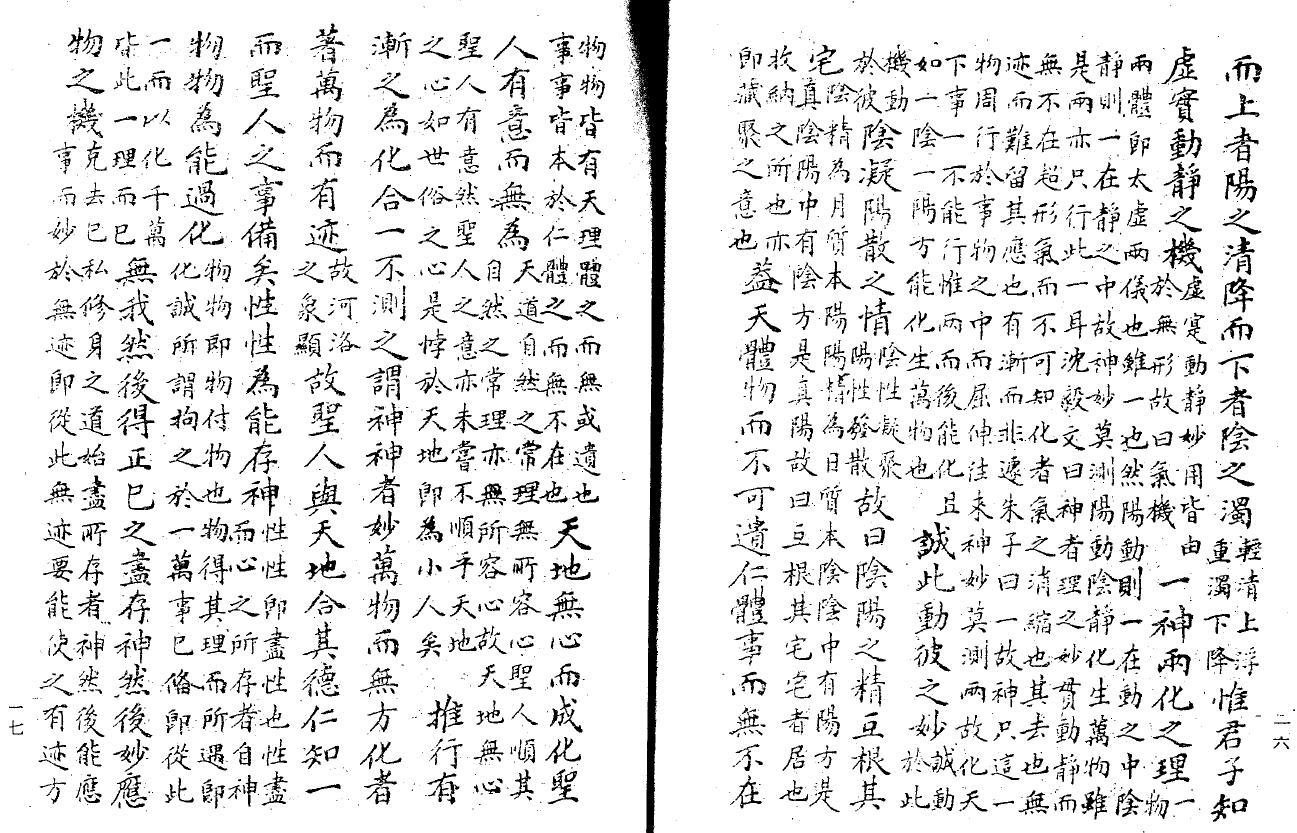 而上者陽之清降而下者陰之濁輕清上浮重濁下降惟君子知
虛實動靜之機虛寔動靜妙用皆由於無形故曰氣機一神兩化之理一物
兩體即太虛兩儀也雖一也然陽動則一在動之中陰
靜則一在靜之中故神妙莫測陽動陰靜化生萬物雖
是兩亦只行此一耳沈毅文曰神者理之妙貫動靜而
無不在超形氣而不可知化者氣之消縮也其去也無
迹而難留其應也有漸而非遽朱子曰一故神只這一
物周行於事物之中而屈伸往來神妙莫測兩故化天
下事一不能行惟兩而後能化且
如一陰一陽方能化生萬物也誠此動彼之妙誠動於此
機動於彼陰凝陽散之情陰性凝聚陽性發散故曰陰陽之精互根其
宅陰精為月質本陽陽精為日質本陰陰中有陽方是
真陰陽中有陰方是真陽故曰互根其宅宅者居也
故納之所也亦
即藏聚之意也蓋天體物而不可遺仁體事而無不在
一六
物物皆有天理體之而無或遺也
事事皆本於仁體之而無不在也天地無心而成化聖
人有意而無為天道自然之常理無所容心聖人順其
自然之常理亦無所容心故天地無心
聖人有意然聖人之意亦未嘗不順乎天地
之心如世俗之心是悖於天地即為小人矣推行有
漸之為化合一不測之謂神神者妙萬物而無方化者
著萬物而有迹故河洛之象顯故聖人與天地合其德仁知一
而聖人之事備矣性性為能存神性性即盡性也性盡
而心之所存者自神
物物為能過化物物即物付物也物得其理而所過即
化誠所謂拘之於一萬事已備即從此
一而以化千萬
皆此一理而已無我然後得正已之盡存神然後妙應
物之機克去已私修身之道始盡所存者神然後能應
事而妙於無迹即從此無迹要能使之有迹方
一七